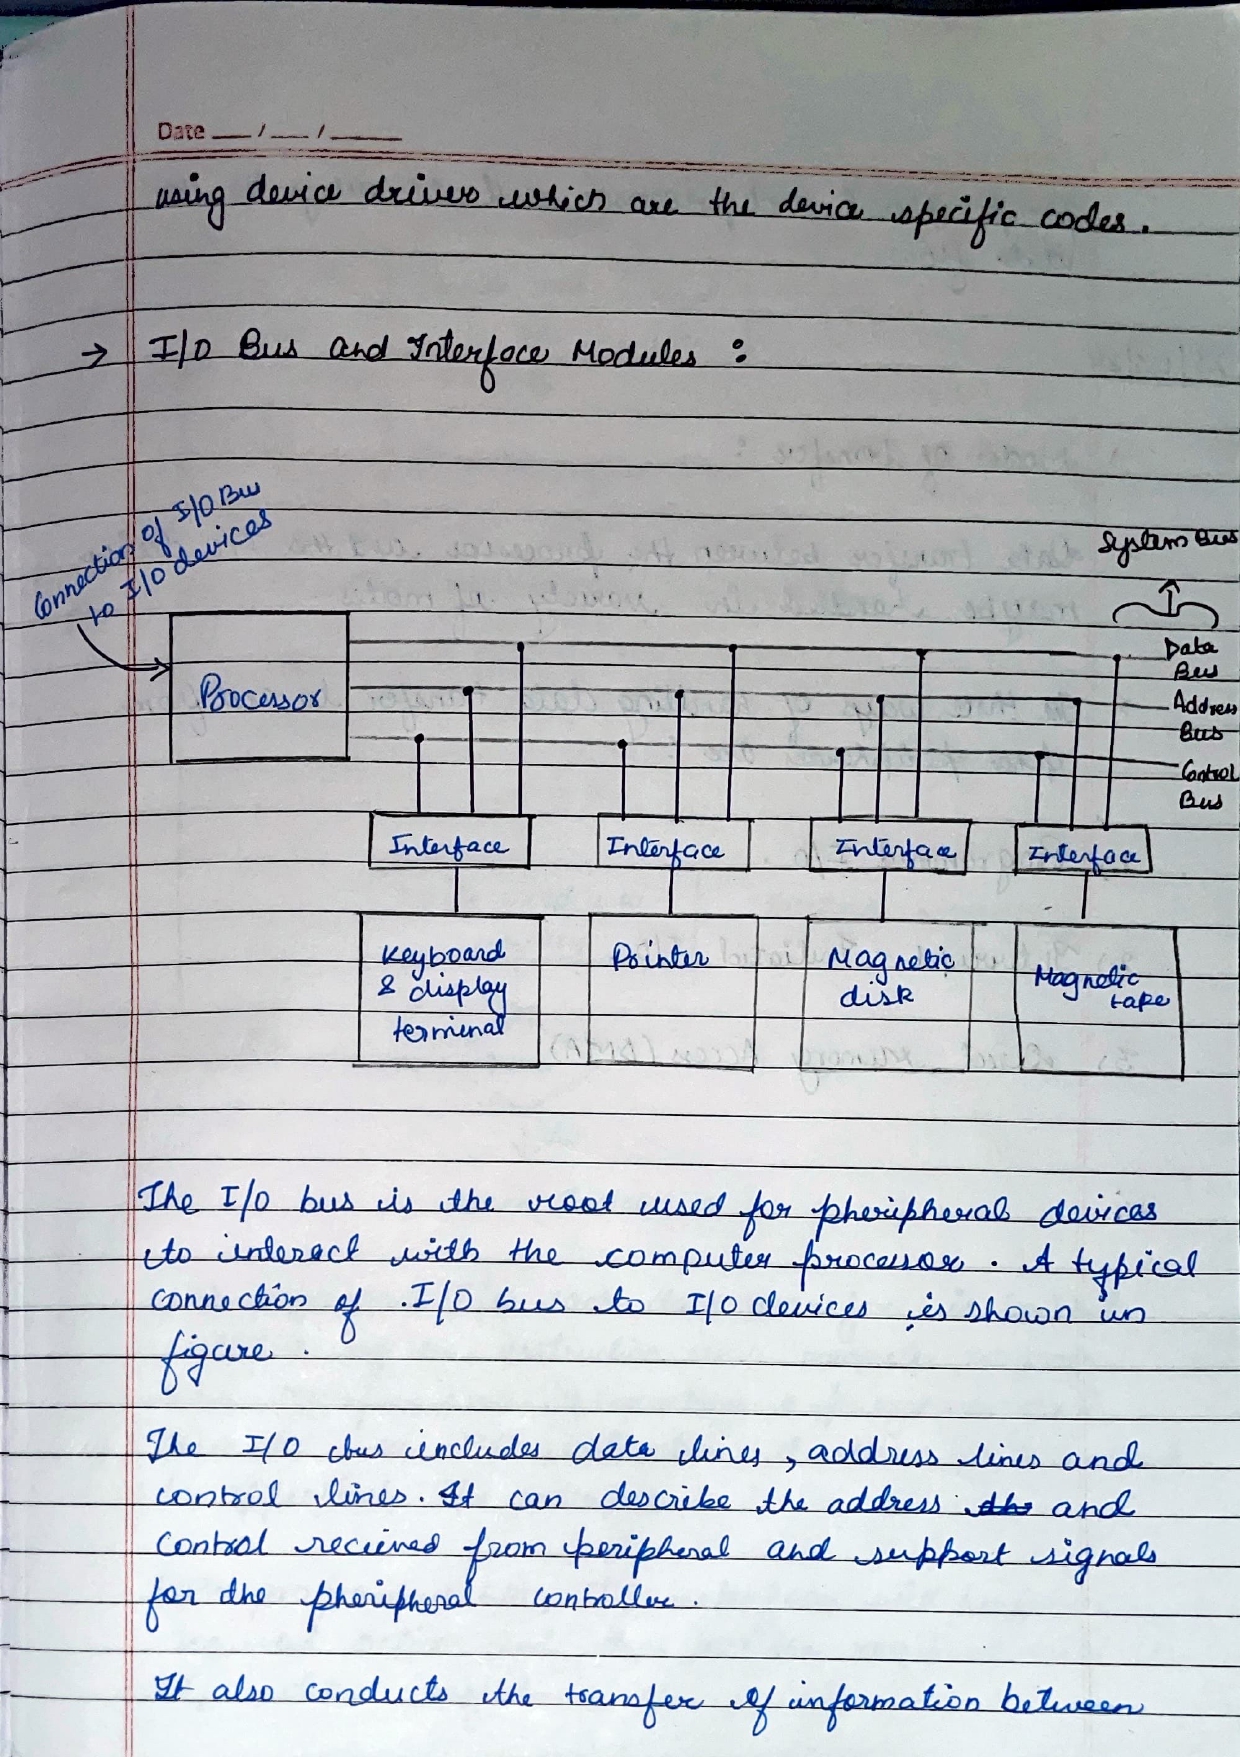 Date __/__/____
using device drivers which are the device specific codes.
→ I/O Bus and Interface Modules :
Connection of I/O Bus
to I/O devices
System Bus
Processor
Data
Bus
Address
Bus
Control
Bus
Interface
Interface
Interface
Interface
Keyboard
& display
terminal
Printer
Magnetic
disk
Magnetic
tape
The I/O bus is the root used for pheripheral devices
to interact with the computer processor. A typical
connection of I/O bus to I/O devices is shown in
figure.
The I/O bus includes data lines, address lines and
control lines. It can describe the address the and
control recieved from peripheral and support signals
for the pheripheral controller.
It also conducts the transfer of information between